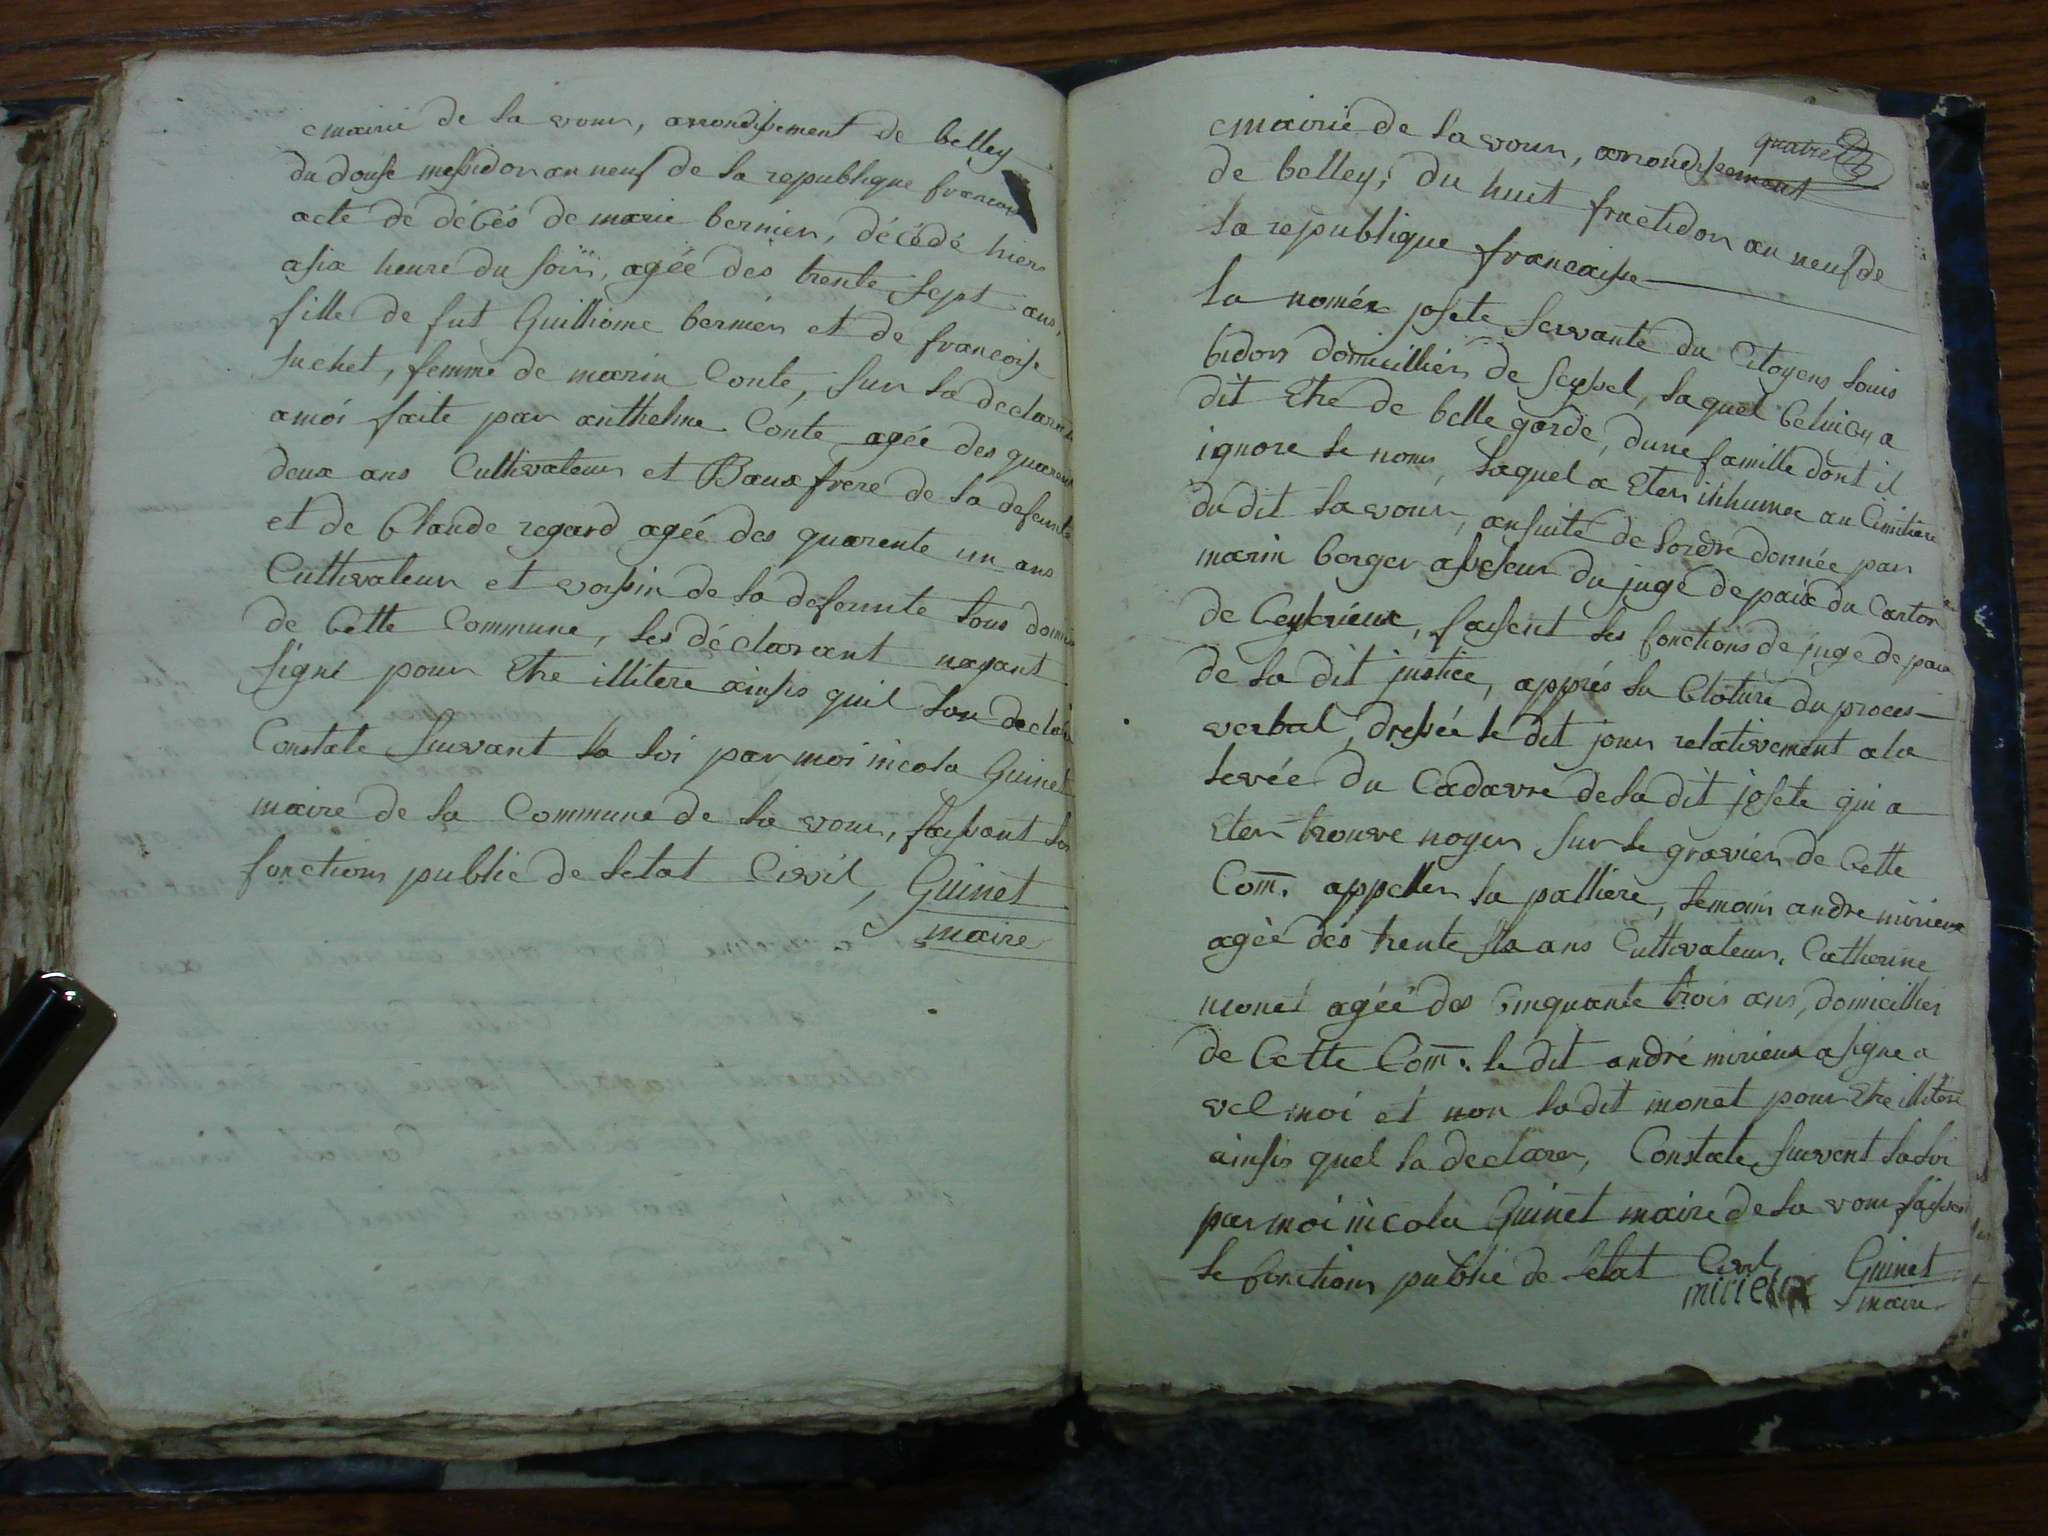 mairie de la vour, arrondissement de belley
du douse messidor an neuf de la republique francais
acte de décés de marie bernier, décédé hiers
a six heure du soiri, agée des trente sept ans,
fille de fut Guilliome bernier et de francoise
suchet, femme de marin Conte, sur la declarat
a moi faite par anthelme Conte agée des quarent
deux ans Cultivateur et Baux frere de la defeunte
et de Claude regard agée des quarente un ans
Cultivateur et voisin de la defeunte tous domi
de Cette Commune, les déclarant nayant
signé pour Etre illitere ainsis quil lon declair
Constate suivant la loi par moi nicola Guinet
maire de la Commune de la vour, faisant les
fonctions public de letat Civil, Guinet
maire
quatre
mairie de la vour, arrondissement
de belley, du huit fructidor an neuf de
la republique francaise
la nomée josete servante du Citoyens louis
bidon domicillier de seyssel, laquel Celuicy a
dit Etre de belle garde, dune famille dont il
ignore le nom, laquel a Eter inhumee au Cimitiere
du dit la vour, ansuite de lordre donnée par
marin berger assesseur du juge de paix du Canton
de Ceyserieux, faisent les fonctions de juge de paix
de la dit justice, apprés la Cloture du proces
verbal, dressée le dit jour relativement a la
levée du Cadavre de la dit josete qui a
Eter trouve noyer sur le gravier de Cette
Com. appeller la palliere, temoin andre mirieux
agée des trente six ans Cultivateur, Catherine
monet agée des Cinquante trois ans, domicillies
de Cette Com. le dit andré mirieux a signe a
vel moi et non la dit monet pour Etre illitere
ainsis quel la declarer, Constate suivent la loi
par moi nicola Guinet maire de la vour faisen
le fonctions public de letat Civil, Guinet
mirieux maire